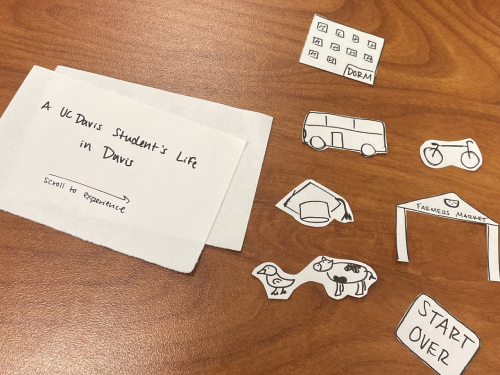 A UC Davis Student's Life
in Davis
Scroll to experience
DORM
FARMERS MARKET
START
OVER